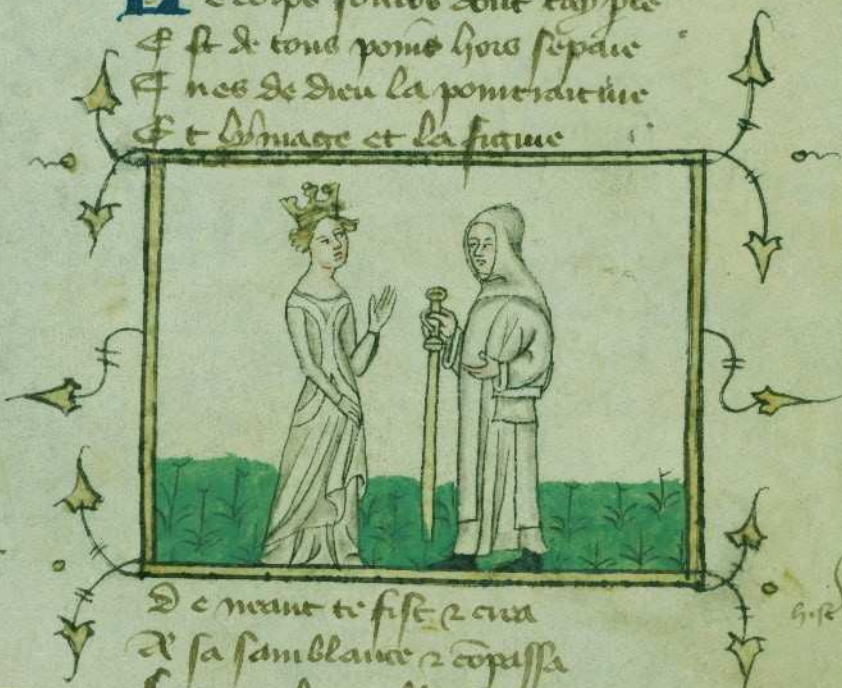 dont tay ple
Est de tous poins hors separe
Tu es de dieu la pourtraiture
Et lymage et la figure
De neant te fist & crea
A sa samblance & cõpassa
hist